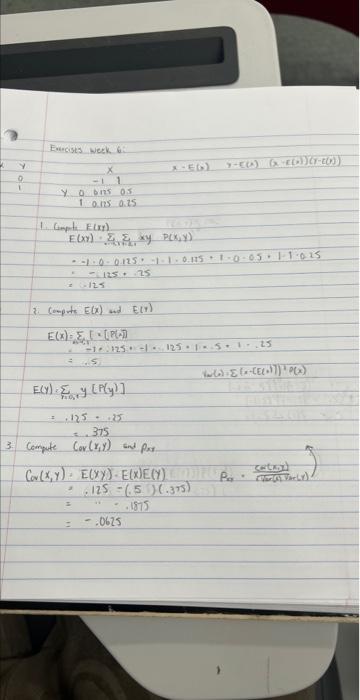 Exercises week 6:
x - E(x) Y - E(x) (x - E(x))(Y - E(Y))
X
Y
0
1
-1 1
Y 0 0.125 0.5
1 0.125 0.25
1. Compute E(XY)
E(XY) = Σ Σ xy P(x,y)
= -1·0·0.125 + -1·1·0.125 + 1·0·0.5 + 1·1·0.25
= -.125 + .25
= .125
2. Compute E(X) and E(Y)
E(X) = Σ [x [P(x)]
= -1·.125 + -1·.125 + 1·.5 + 1·.25
= .5
Var(x) = Σ (x - [E(x)])² P(x)
E(Y) = Σ y [P(y)]
= .125 + .25
= .375
3. Compute Cov(X,Y) and Pxy
Cov(X,Y) = E(XY) - E(X)E(Y) Pxy = Cov(X,Y) / √Var(x) Var(Y)
= .125 - (.5)(.375)
= " - .1875
= -.0625